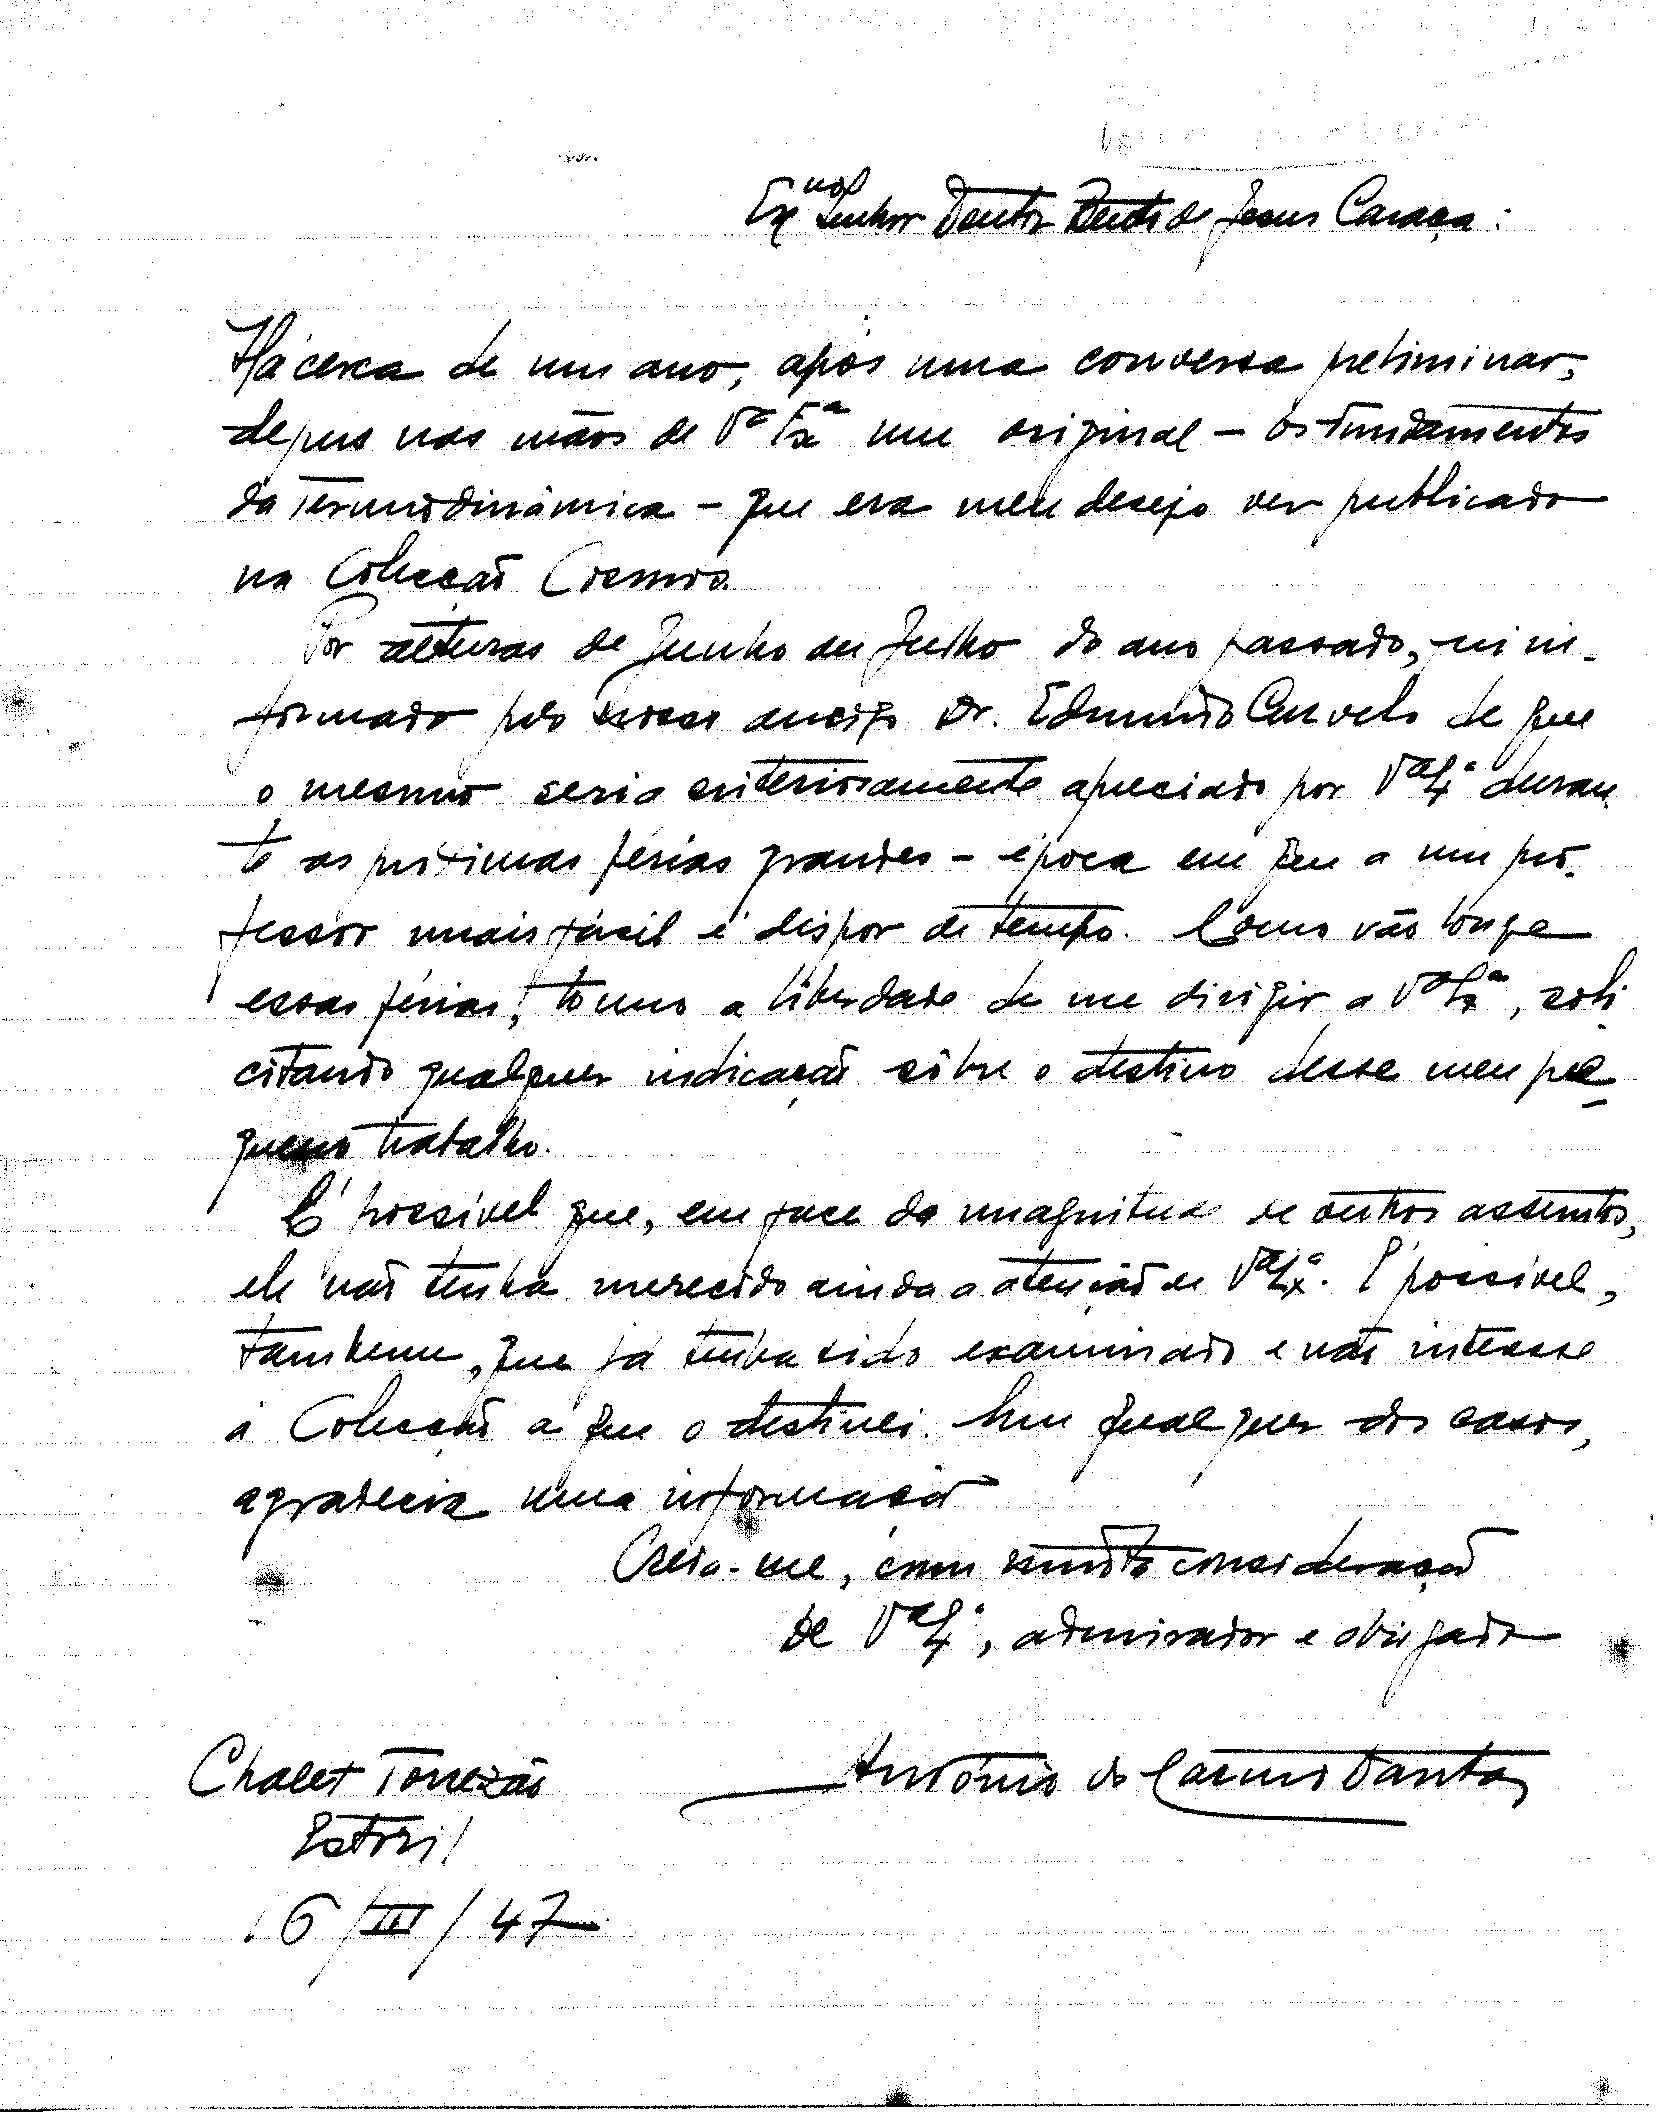 Exmo Senhor Doutor Bento de Jesus Caraça:
Há cerca de um ano, após uma conversa preliminar,
depus nas mãos de Vª Exª um original – Os Fundamentos
da Termodinâmica – que era meu desejo ver publicado
na Colecção Cosmos.
Por alturas de Junho ou Julho do ano passado, fui in-
formado pelo nosso amigo Dr. Edmundo Curvelo de que
o mesmo seria criteriosamente apreciado por Vª Exª duran
te as próximas férias grandes – época em que a um pro-
fessor mais fácil é dispor de tempo. Como vão longe
essas férias, tomo a liberdade de me dirigir a Vª Exª, soli
citando qualquer indicação sôbre o destino desse meu pe
queno trabalho.
É possível que, em face da magnitude de outros assuntos,
ele não tenha merecido ainda a atenção de Vª Exª. É possível,
tambem, que já tenha sido examinado e não interesse
à Colecção a que o destinei. Em qualquer dos casos,
agradecia uma informação
Creia-me, com muita consideração
de Vª Exª, admirador e obrigado
António do Carmo Dantas
Chalet Torrezão
Estoril
16/III/47